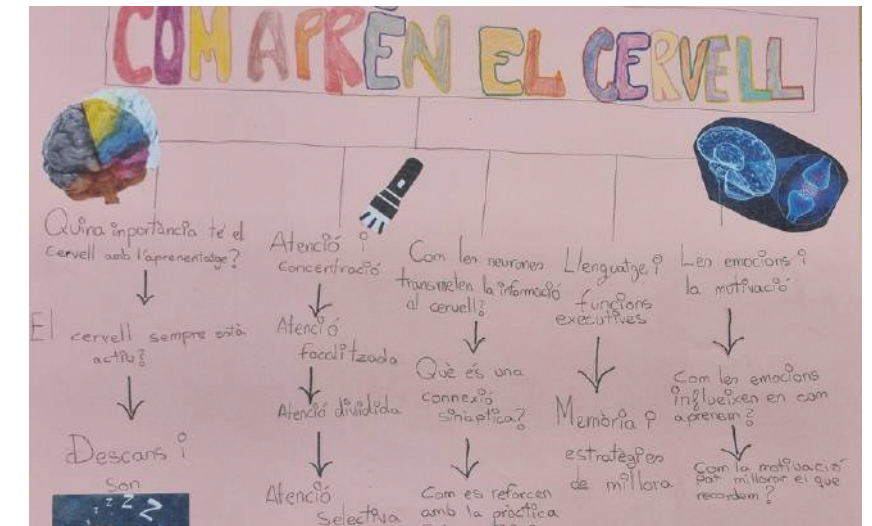 COM APRÈN EL CERVELL
Quina inportància té el
cervell amb l'aprenentatge?
El cervell sempre està
actiu?
Descans i
son
z z Z
Atenció i
concentració
Atenció
focalitzada
Atenció dividida
Atenció
selectiva
Com les neurones
transmeten la informació
al cervell?
Què és una
connexió
sinàptica?
Com es reforcen
amb la pràctica
Llenguatge i
funcions
executives
Memòria i
estratègies
de millora
Les emocions i
la motivació
Com les emocions
influeixen en com
aprenem?
Com la motivació
pot millorar el que
recordem?